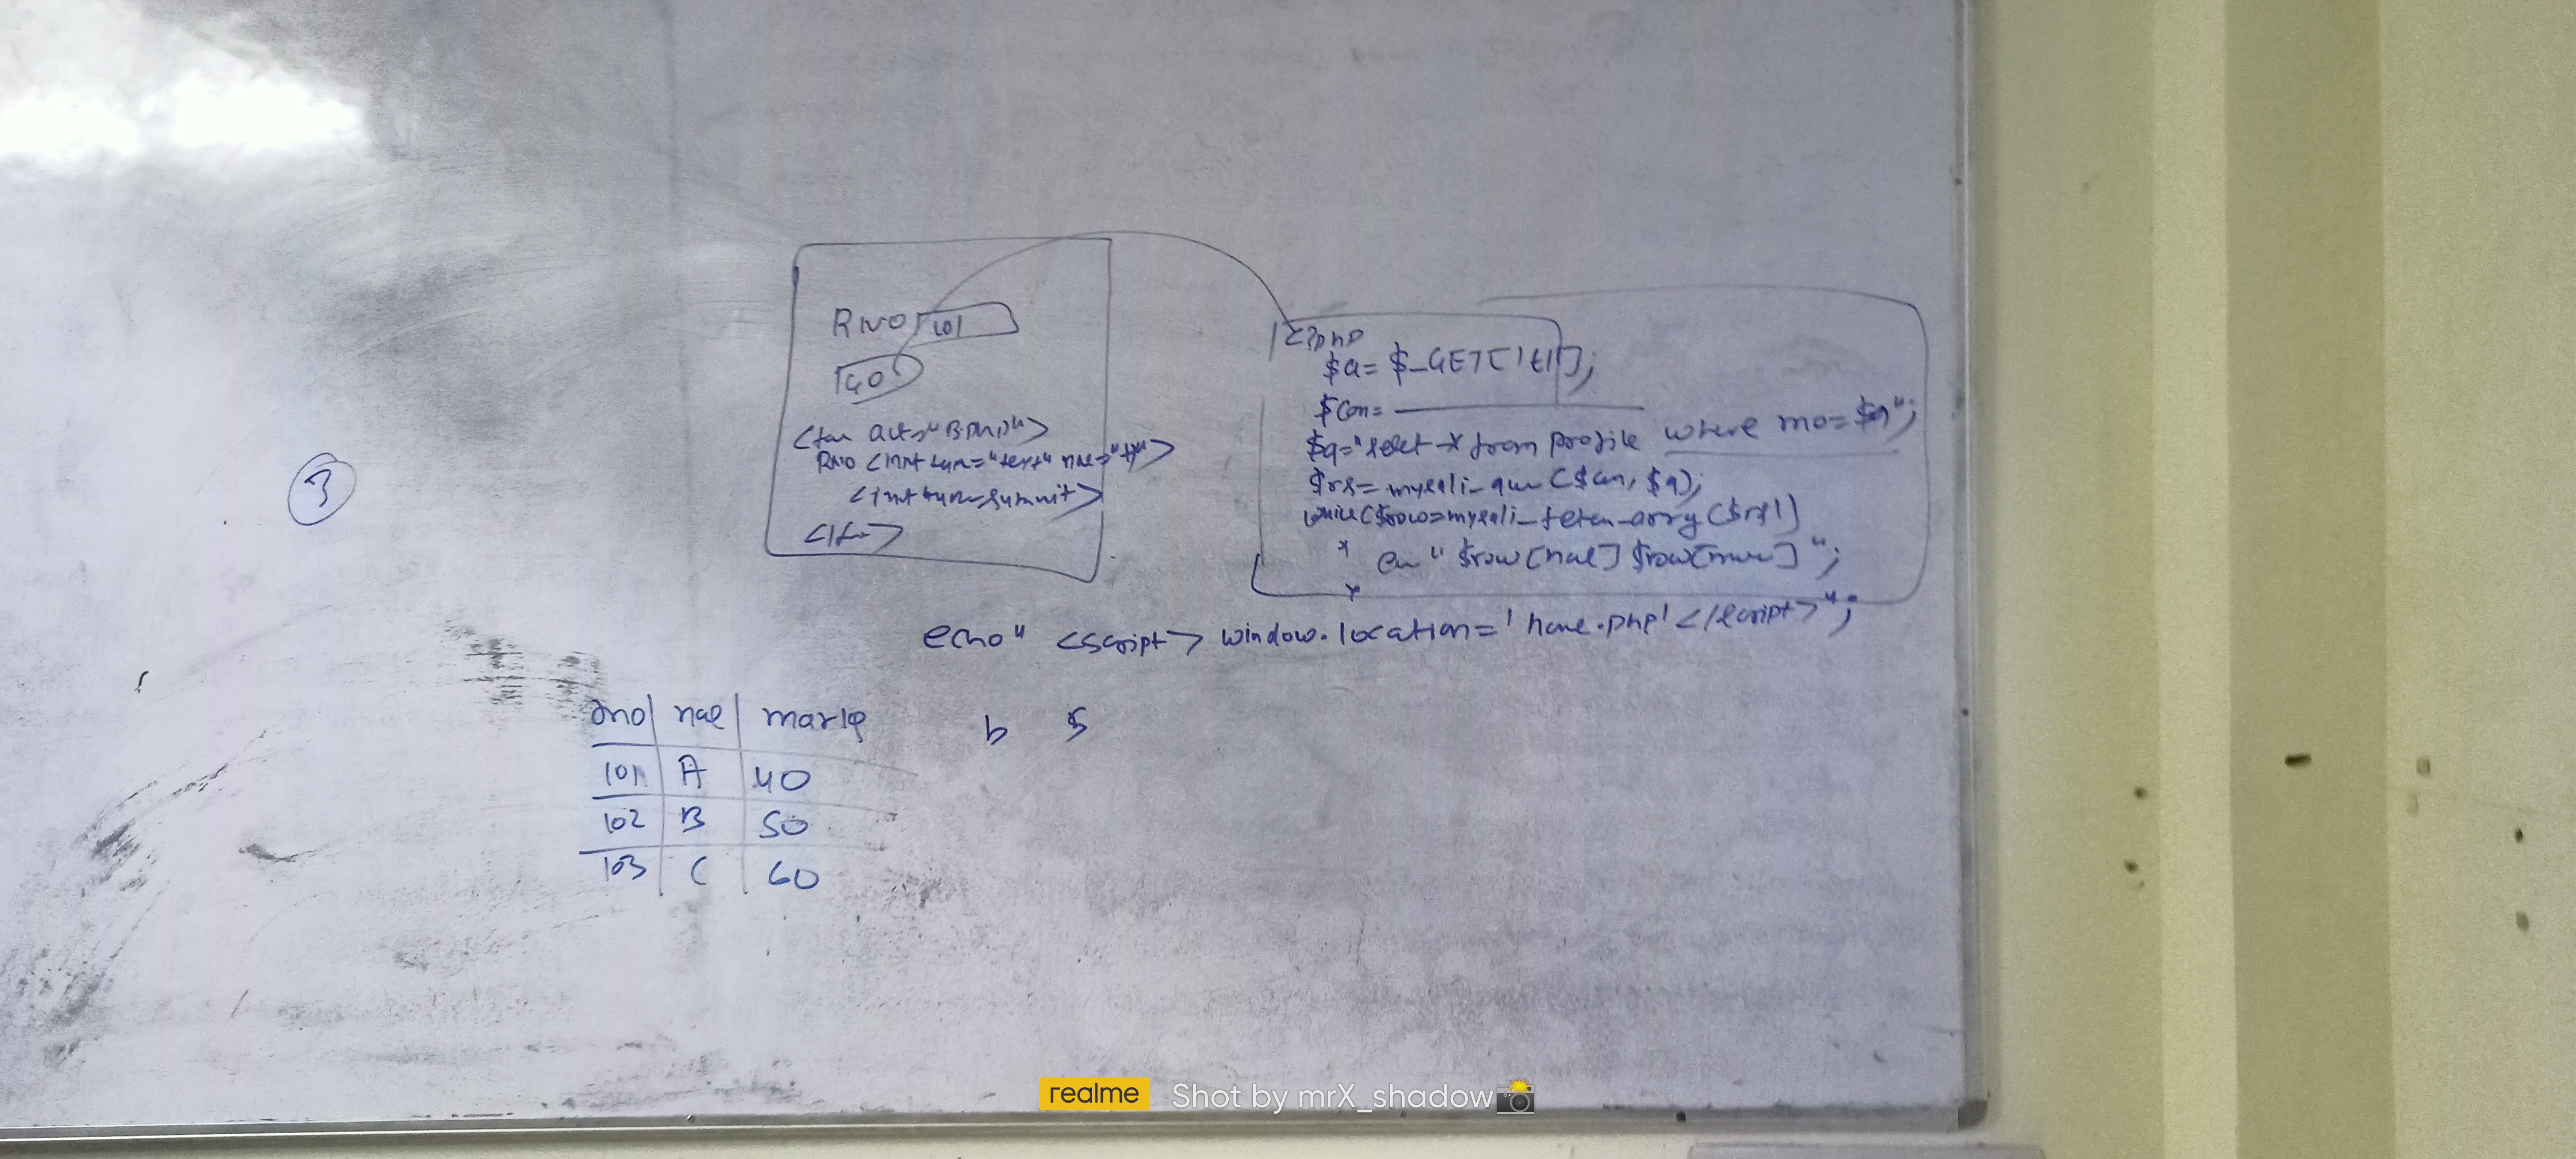 3
RNO 101
GO
<for act="B.php">
RNO <inpt type="text" nae="t1">
<inpt type=submit>
</for>
<?php
$a= $_GET['t1'];
$con=
$q="select * from profile where rno=$a";
$rs= mysqli_que($con, $q);
while($row=mysqli_fetch_array($rs))
" $row[nae] $row[
echo" <script> window.location='home.php'</script>";
rno nae marks
101 A 40
102 B 50
103 C 60
b $
realme Shot by mrX_shadow📸